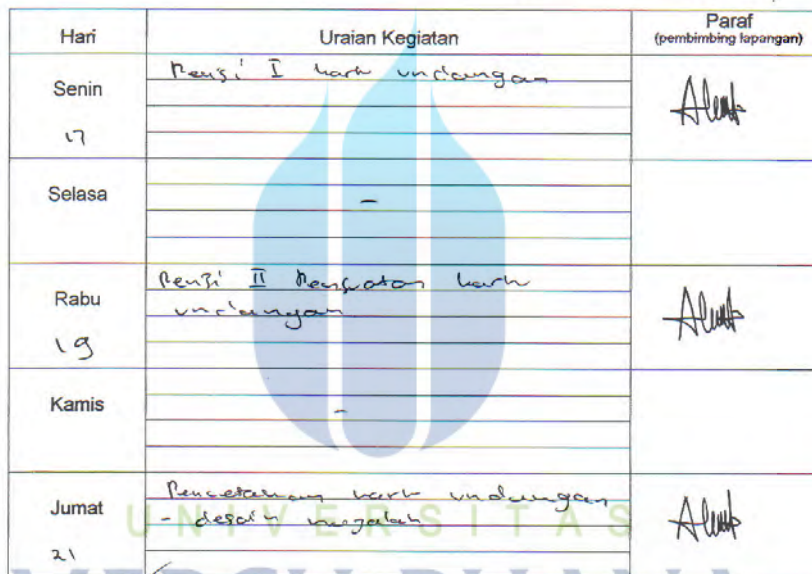 Hari Uraian Kegiatan Paraf
(pembimbing lapangan)
Senin Revisi I kartu undangan
17
Selasa -
Rabu Revisi II Pembuatan kartu
undangan
19
Kamis -
Jumat Pencetakan kartu undangan
- desain majalah
21
UNIVERSITAS
MERCU BUANA